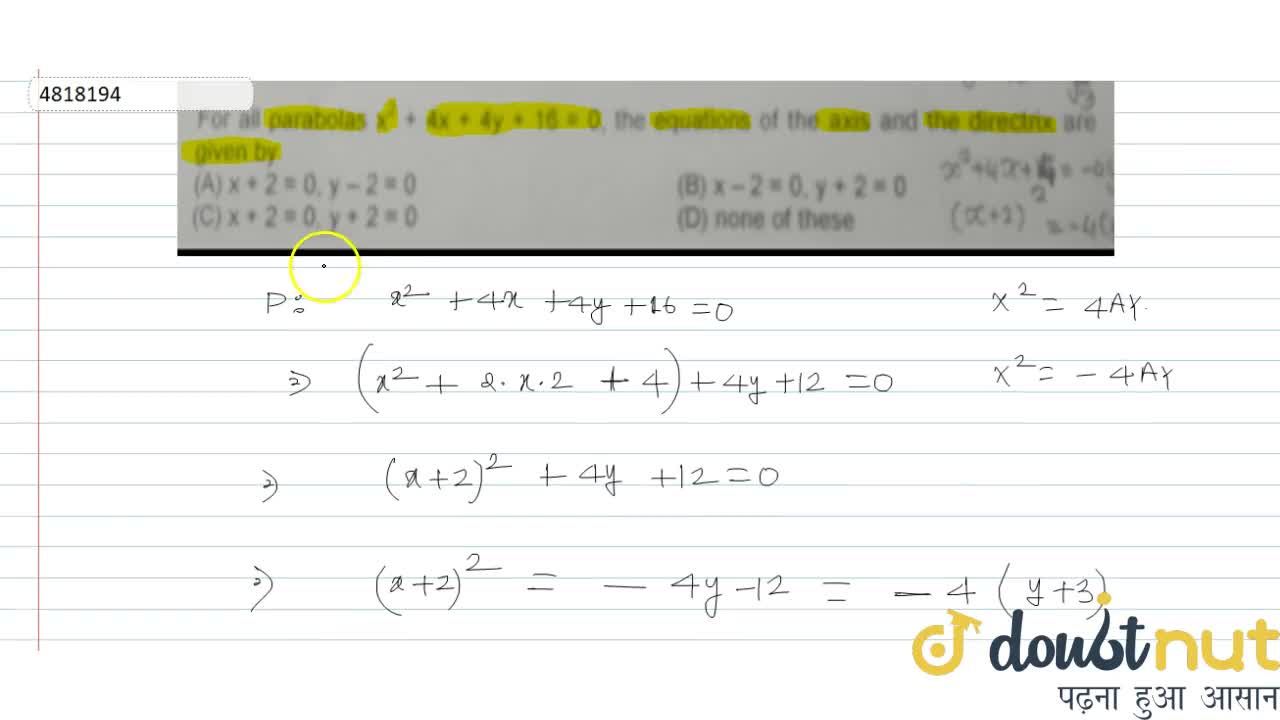 4818194
√3
For all parabolas x² + 4x + 4y + 16 = 0, the equations of the axis and the directrix are
given by
(A) x + 2 = 0, y – 2 = 0 (B) x – 2 = 0, y + 2 = 0
(C) x + 2 = 0, y + 2 = 0 (D) none of these
(x+2)² = -4(
P: x² + 4x + 4y + 16 = 0
x² = 4AY.
⇒ (x² + 2·x·2 + 4) + 4y + 12 = 0
x² = - 4AY
⇒ (x+2)² + 4y + 12 = 0
⇒ (x+2)² = - 4y - 12 = - 4 (y+3)
doubtnut
पढ़ना हुआ आसान